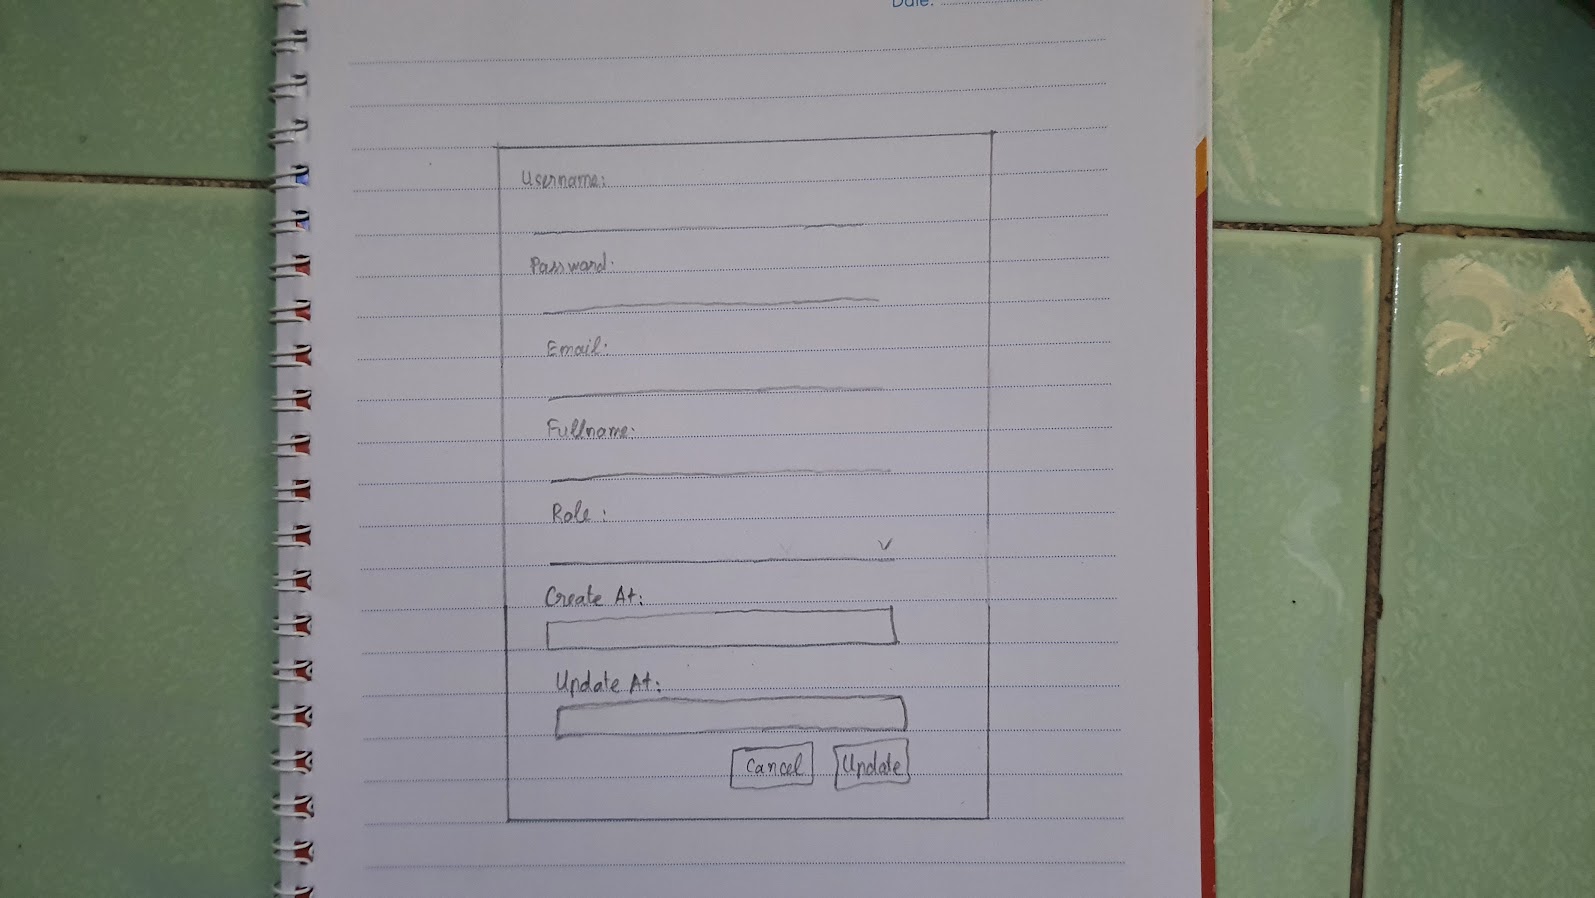 Date:
Username:
Password:
Email:
Fullname:
Role:
Create At:
Update At:
Cancel Update